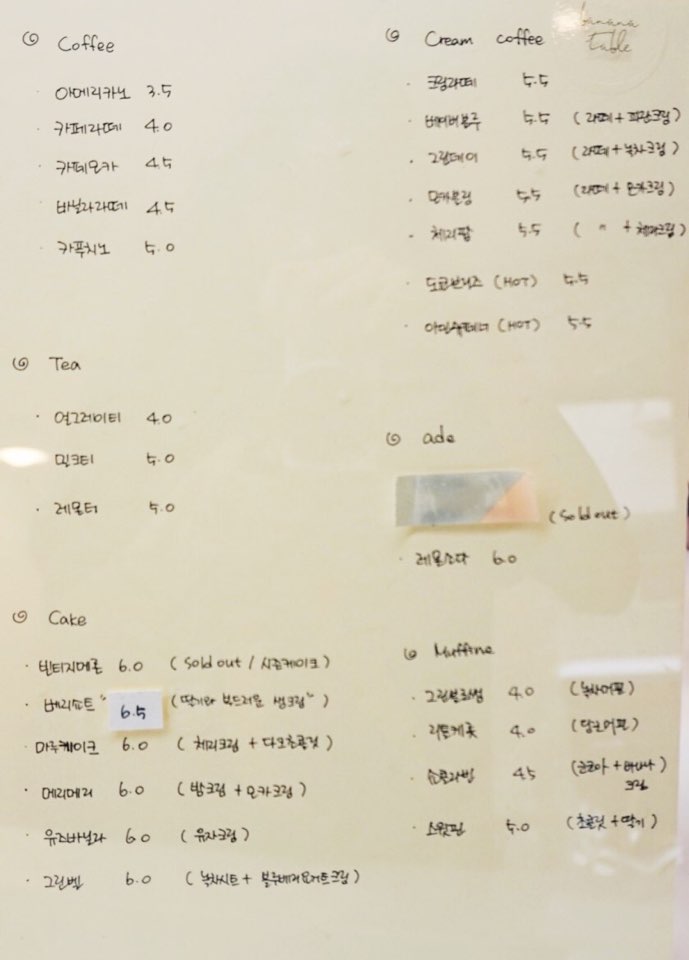 Coffee
· 아메리카노 3.5
· 카페라떼 4.0
· 카페모카 4.5
· 바닐라라떼 4.5
· 카푸치노 5.0
Tea
· 얼그레이티 4.0
· 밀크티 5.0
· 레몬티 5.0
Cake
· 빈티지메론 6.0 (Sold out / 시즌케이크)
· 베리쇼트" 6.5 (딸기와 부드러운 생크림")
· 마루케이크 6.0 (체리크림 + 다크초콜릿)
· 메리메리 6.0 (밤크림 + 모카크림)
· 유즈바닐라 6.0 (유자크림)
· 그린벨 6.0 (녹차시트 + 블루베리요거트크림)
banana
table
Cream coffee
· 크림라떼 5.5
· 5.5 (라떼 + 피칸크림)
· 그린데이 5.5 (라떼 + 녹차크림)
· 모카블링 5.5 (라떼 + 모카크림)
· 체리팝 5.5 ( " + 체리크림)
· (HOT) 5.5
· (HOT) 5.5
ade
(Sold out)
· 레몬소다 6.0
Muffine
· 4.0 (녹차머핀)
· 리틀캐롯 4.0 (당근머핀)
· 4.5 (코코아 + 바나나
크림)
· 5.0 (초콜릿 + 딸기)